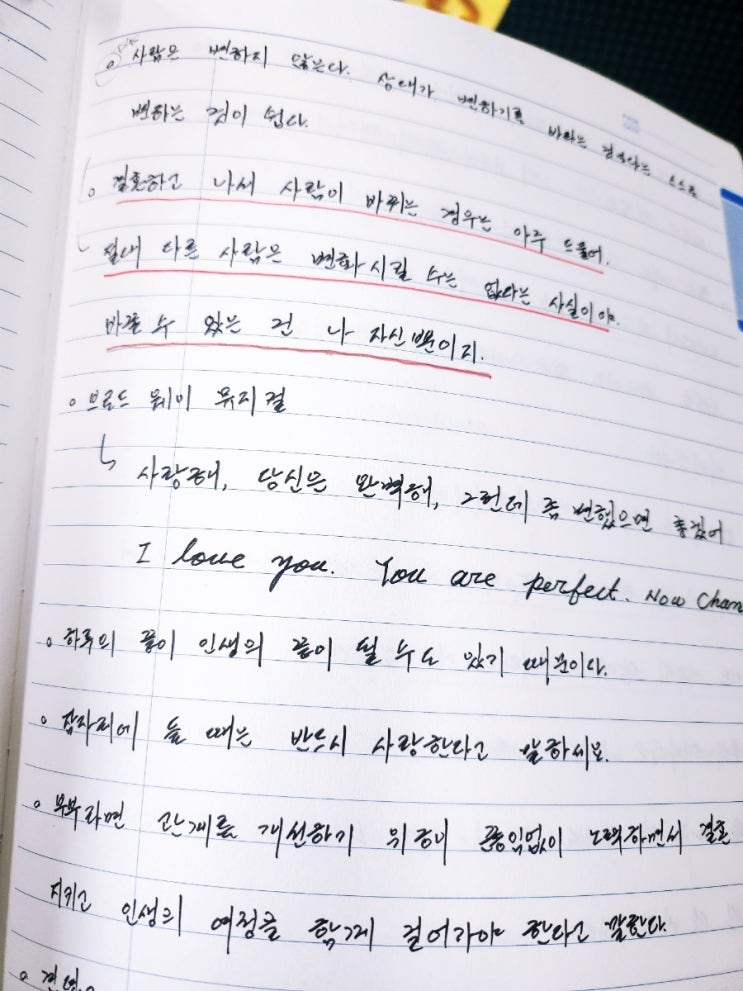 ◦ 사람은 변하지 않는다. 상대가 변하기를 바라는 것보다는 스스로
변하는 것이 쉽다.
◦ 결혼하고 나서 사람이 바뀌는 경우는 아주 드물어.
절대 다른 사람은 변화시킬 수는 없다는 사실이야.
바꿀 수 있는 건 나 자신뿐이지.
◦ 브로드 웨이 뮤지컬
↳ 사랑해, 당신은 완벽해, 그런데 좀 변했으면 좋겠어
I love you. You are perfect. Now Chan
◦ 하루의 끝이 인생의 끝이 될 수도 있기 때문이다.
◦ 잠자리에 들 때는 반드시 사랑한다고 말하세요.
◦ 부부라면 관계를 개선하기 위해 끊임없이 노력하면서 결혼
지키고 인생의 여정을 함께 걸어가야 한다고 말한다.